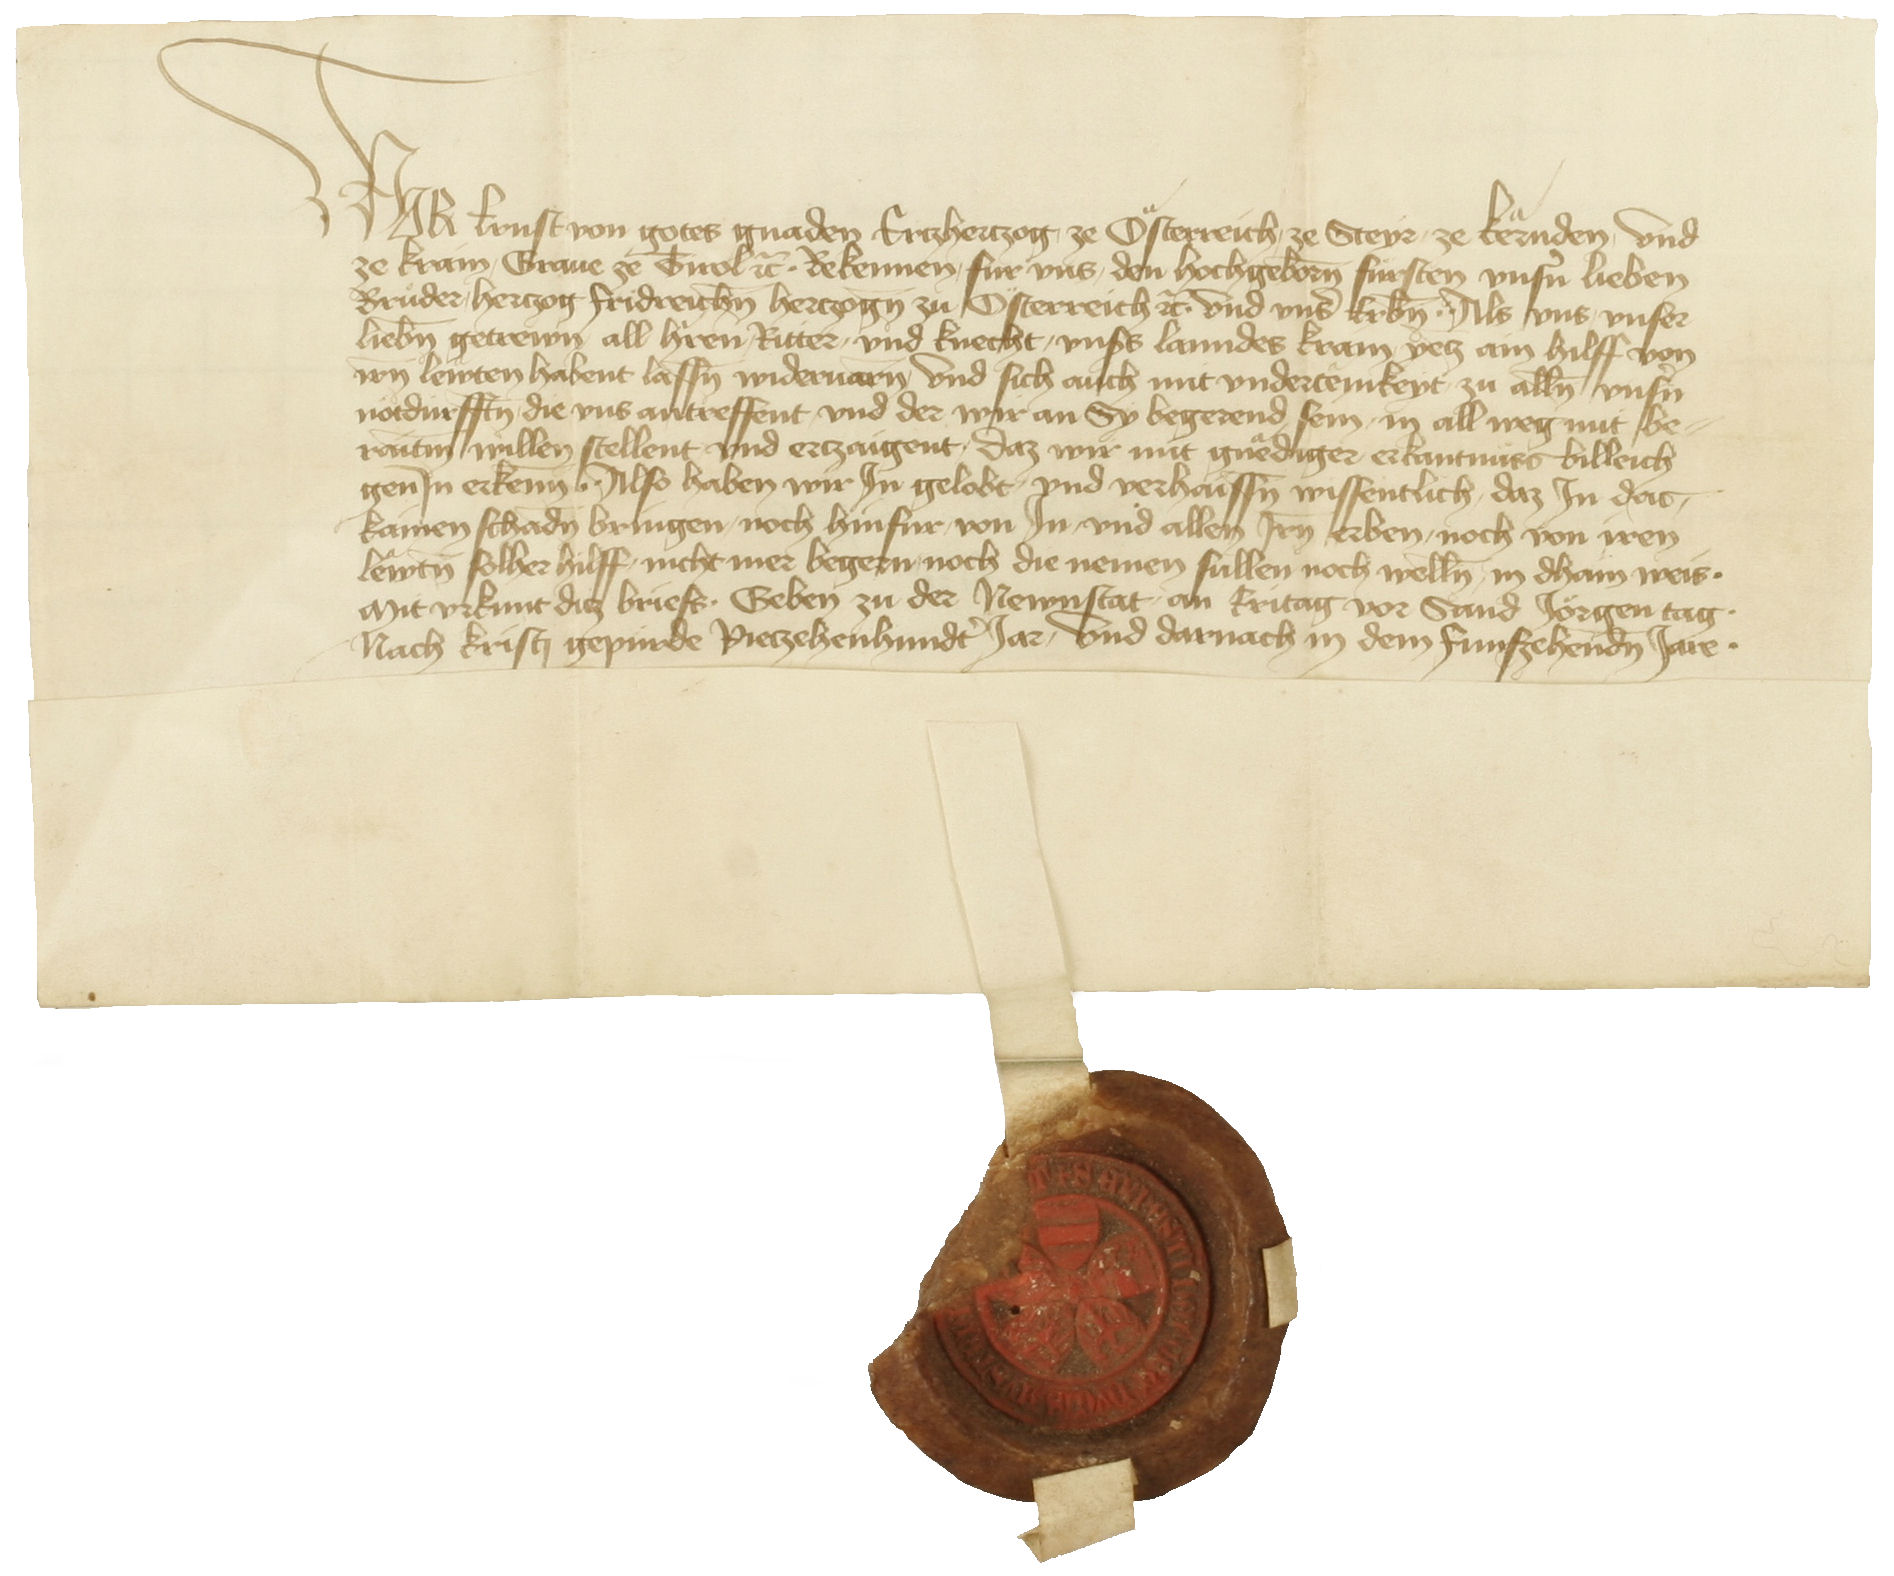 Wir Ernst von gotes gnaden Ertzhertzog ze Österreich ze Steyr ze Kërnden Vnd
ze Krain Graue ze Tirol ꝛc̄. Bekennen fur vns den hochgeborn̄ fürsten vnsn̄ lieben
Brůder hertzog Fridreichn̄ hertzogn̄ zu Österreich ꝛc̄. vnd vns̄ Erbn̄. Als vns vnser
liebn̄ getrewn all h̄ren Ritter vnd knecht vnss lanndes Krain yetz ain hilff von
irn̄ lewten habent lassn̄ wideruarn̄ Vnd sich auch mit vndertenikeyt zu alln̄ vnsn̄
notdurfftn̄ die vns antreffent vnd der wir an Sy begerend sein in all weg mit be-
raitm willen stellent vnd ertzaigent. Daz wir mit gnediger erkantnuss billeich
gen In erkenn̄. Also haben wir In gelobt vnd verhaissn̄ wissentlich, daz In daz
kainen schadn̄ bringen noch hinfur von In vnd allen Irn̄ erben noch von iren
lewtn̄ solher hilff nicht mer begern noch die nemen sullen noch welln̄ in dhain weis.
Mit vrkunt ditz briefs. Geben zu der Newnstat an Eritag vor Sand Jörgen tag.
Nach Kristi gepurde Vietzehenhundt̄ Jar Vnd darnach in dem funfzehendn̄ Jare.